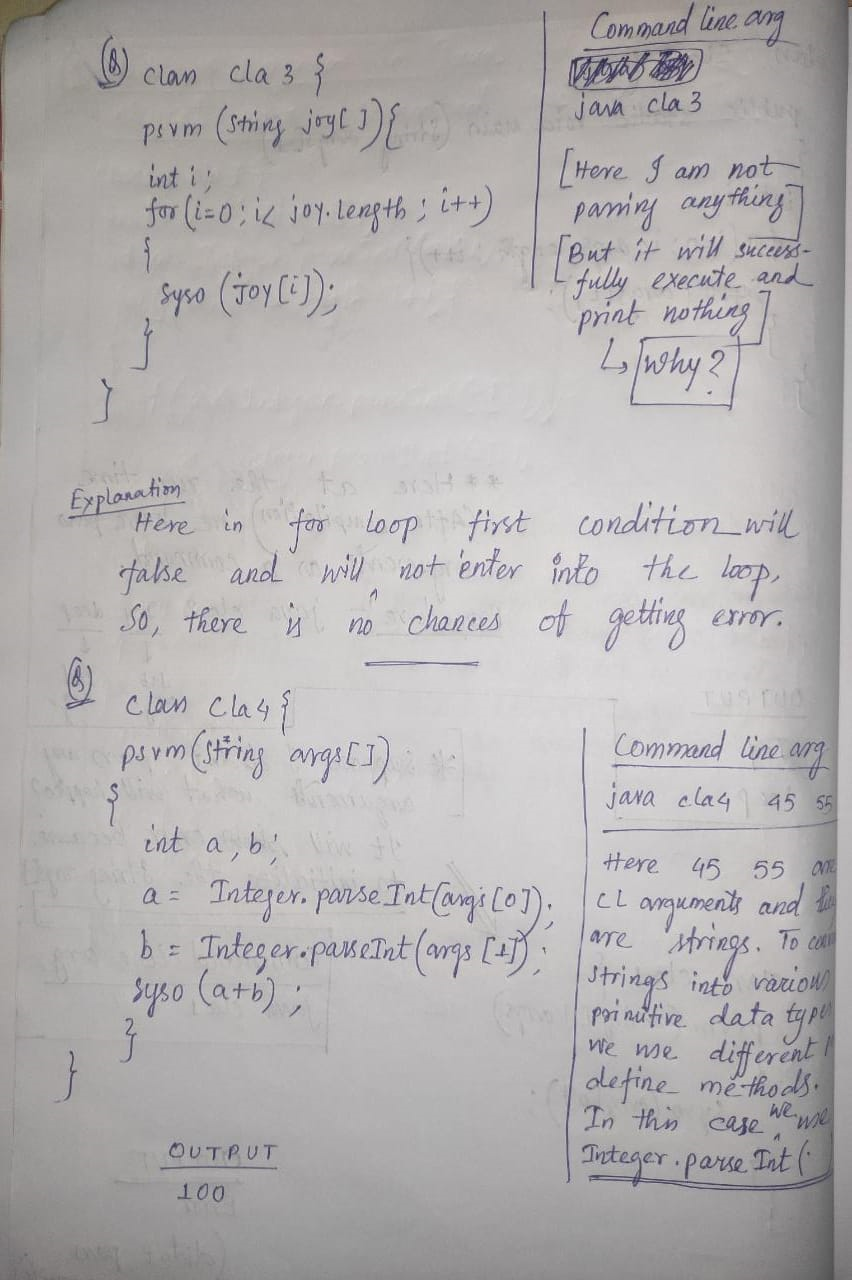 Q) class cla 3 {
psvm (String joy[ ]){
int i;
for (i=0; i< joy.length; i++)
{
syso (joy[i]);
}
}
Command line arg
java cla 3
[Here I am not
passing anything]
[But it will success-
fully execute and
print nothing]
↳ Why?
Explanation
Here in for loop first condition will
false and will not enter into the loop,
So, there is no chances of getting error.
Q) class cla4 {
psvm (String args[])
{
int a, b;
a = Integer.parseInt(args[0]);
b = Integer.parseInt(args [1]);
syso (a+b);
}
}
OUTPUT
100
Command line arg
java cla4 45 55
Here 45 55 are
CL arguments and
are strings. To
strings into various
primitive data
we use different
define methods.
In this case we use
Integer.parseInt(